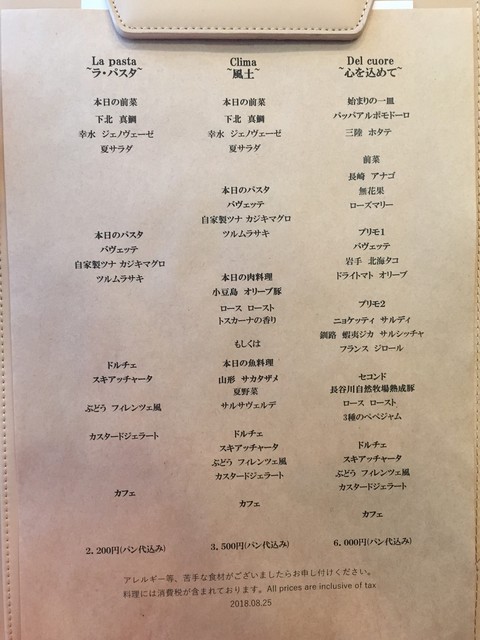 La pasta
~ラ・パスタ~
本日の前菜
下北 真鯛
幸水 ジェノヴェーゼ
夏サラダ
本日のパスタ
バヴェッテ
自家製ツナ カジキマグロ
ツルムラサキ
ドルチェ
スキアッチャータ
ぶどう フィレンツェ風
カスタードジェラート
カフェ
2,200円(パン代込み)
Clima
~風土~
本日の前菜
下北 真鯛
幸水 ジェノヴェーゼ
夏サラダ
本日のパスタ
バヴェッテ
自家製ツナ カジキマグロ
ツルムラサキ
本日の肉料理
小豆島 オリーブ豚
ロース ロースト
トスカーナの香り
もしくは
本日の魚料理
山形 サカタザメ
夏野菜
サルサヴェルデ
ドルチェ
スキアッチャータ
ぶどう フィレンツェ風
カスタードジェラート
カフェ
3,500円(パン代込み)
Del cuore
~心を込めて~
始まりの一皿
パッパアルポモドーロ
三陸 ホタテ
前菜
長崎 アナゴ
無花果
ローズマリー
プリモ1
バヴェッテ
岩手 北海タコ
ドライトマト オリーブ
プリモ2
ニョケッティ サルディ
釧路 蝦夷ジカ サルシッチャ
フランス ジロール
セコンド
長谷川自然牧場熟成豚
ロース ロースト
3種のペペジャム
ドルチェ
スキアッチャータ
ぶどう フィレンツェ風
カスタードジェラート
カフェ
6,000円(パン代込み)
アレルギー等、苦手な食材がございましたらお申し付けください。
料理には消費税が含まれております。All prices are inclusive of tax
2018.08.25